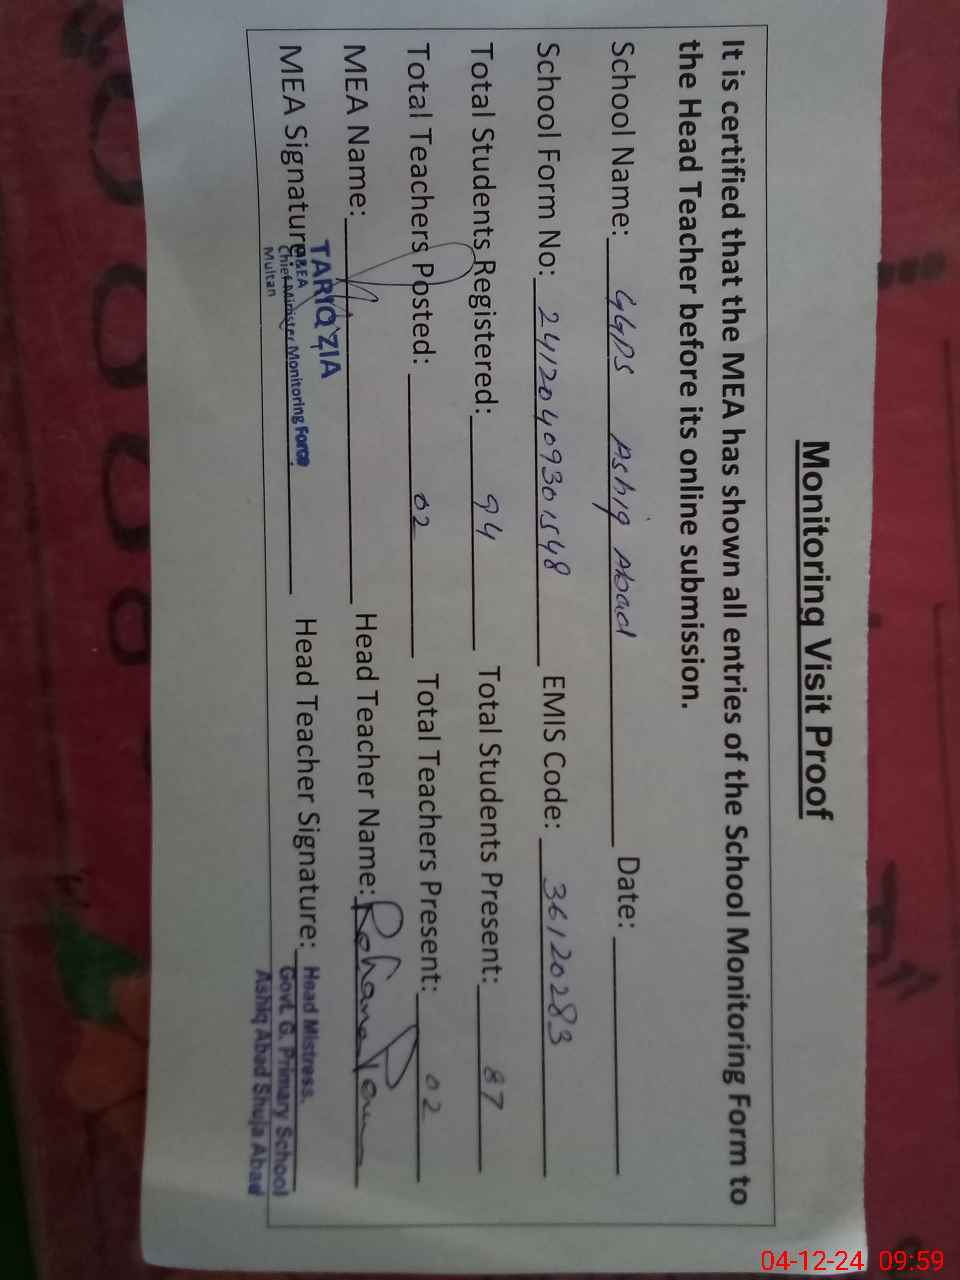 Monitoring Visit Proof
It is certified that the MEA has shown all entries of the School Monitoring Form to
the Head Teacher before its online submission.
School Name: GGPS Ashiq Abad Date:
School Form No: 24120409301548 EMIS Code: 36120283
Total Students Registered: 94 Total Students Present: 87
Total Teachers Posted: 02 Total Teachers Present: 02
MEA Name: Head Teacher Name:
TARIQ ZIA
MEA Signature: Head Teacher Signature:
M&EA
Chief Minister Monitoring Force
Multan
Head Mistress.
Govt. G. Primary School
Ashiq Abad Shuja Abad
04-12-24 09:59